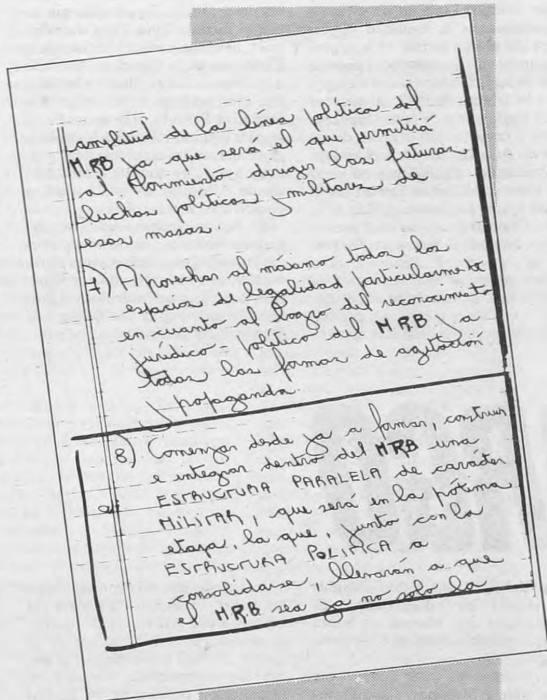 amplitud de la línea política del
M.RB ya que será el que permitirá
al Movimiento dirigir las futuras
luchas políticas y militares de
esas masas.
7) Aprovechar al máximo todos los
espacios de legalidad particularmente
en cuanto al logro del reconocimiento
jurídico y político del MRB y a
todas las formas de agitación
y propaganda.
8) Comenzar desde ya a formar, construir
e integrar dentro del MRB una
ESTRUCTURA PARALELA de carácter
MILITAR, que será en la próxima
etapa, la que, junto con la
ESTRUCTURA POLITICA a
consolidarse, llevarán a que
el MRB sea ya no solo la